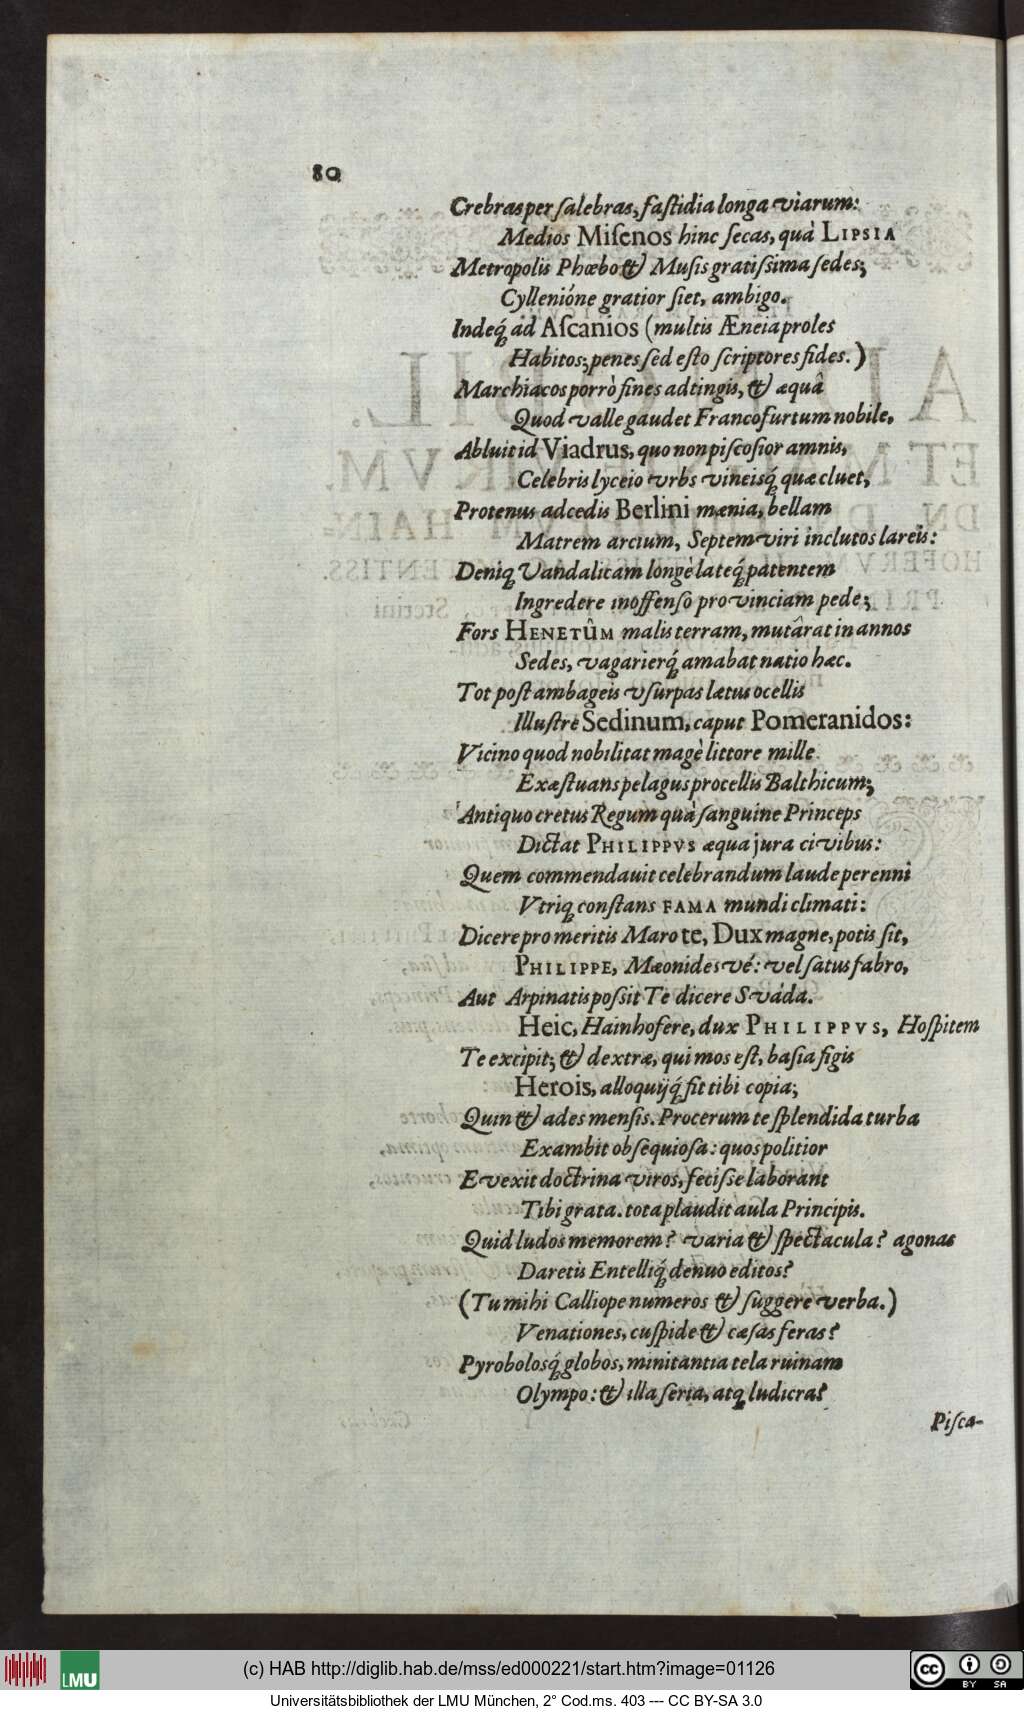 80
Crebras per ſalebras, faſtidia longa viarum:
Medios Miſenos hinc ſecas, quà LIPSIA
Metropolis Phœbo & Muſis gratiſsima ſedes;
Cyllenióne gratior ſiet, ambigo.
Indeq́; ad Aſcanios (multis Æneia proles
Habitos; penes ſed eſto ſcriptores fides.)
Marchiacos porrò fines adtingis, & æquâ
Quod valle gaudet Francofurtum nobile,
Abluit id Viadrus, quo non piſcoſior amnis,
Celebris lyceio vrbs vineisq́; quæ cluet,
Protenus adcedis Berlini mænia, bellam
Matrem arcium, Septemviri inclutos lareis:
Deniq; Vandalicam longè lateq́; patentem
Ingredere inoffenſo provinciam pede;
Fors HENETÛM malis terram, mutârat in annos
Sedes, vagarierq́; amabat natio hæc.
Tot poſt ambageis vſurpas lætus ocellis
Illuſtre Sedinum, caput Pomeranidos:
Vicino quod nobilitat magè littore mille
Exæſtuans pelagus procellis Balthicum;
Antiquo cretus Regum quà ſanguine Princeps
Dictat PHILIPPVS æqua jura civibus:
Quem commendauit celebrandum laude perenni
Vtriq; conſtans FAMA mundi climati:
Dicere pro meritis Maro te, Dux magne, potis ſit,
PHILIPPE, Mæonides vé: vel ſatus fabro,
Aut Arpinatis poſsit Te dicere Svàda.
Heic, Hainhofere, dux PHILIPPVS, Hoſpitem
Te excipit; & dextræ, qui mos eſt, baſia figis
Herois, alloquijq́; fit tibi copia;
Quin & ades menſis. Procerum te ſplendida turba
Exambit obſequioſa: quos politior
Evexit doctrina viros, feciſſe laborant
Tibi grata. tota plaudit aula Principis.
Quid ludos memorem? varia & ſpectacula? agonas
Daretis Entelliq́; denuo editos?
(Tu mihi Calliope numeros & ſuggere verba.)
Venationes, cuſpide & cæſas feras?
Pyrobolosq́; globos, minitantia tela ruinam
Olympo: & illa ſeria, atq; ludicra?
Piſca-
(c) HAB http://diglib.hab.de/mss/ed000221/start.htm?image=01126
LMU
cc BY SA
Universitätsbibliothek der LMU München, 2° Cod.ms. 403 --- CC BY-SA 3.0